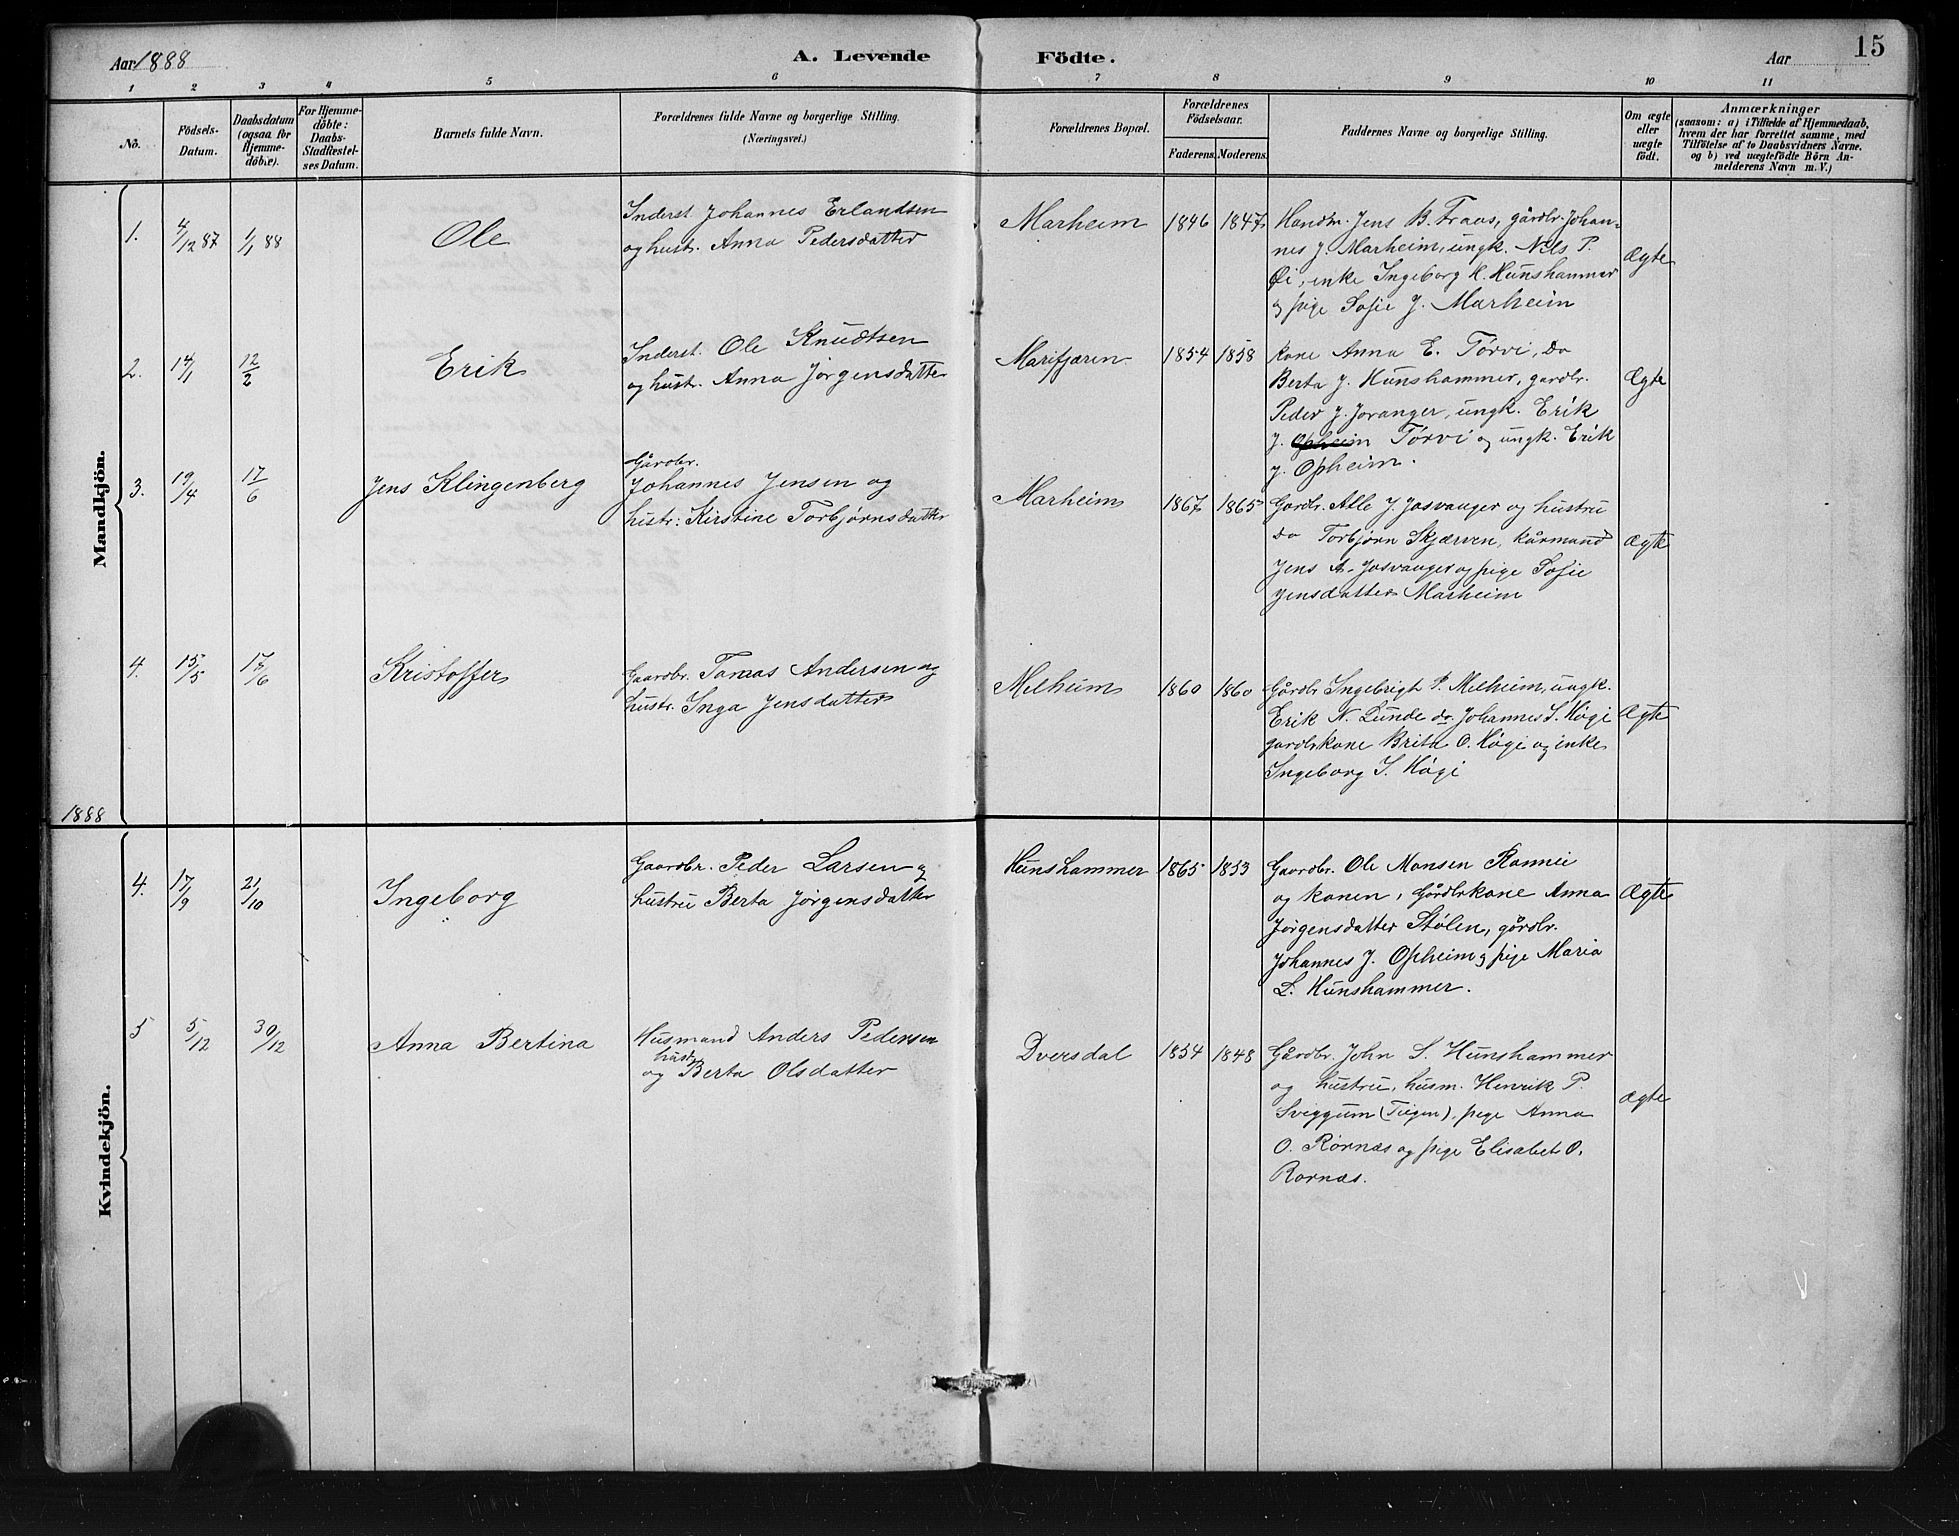 Aar 1888
A. Levende
Födte.
Aar
15
1 2 3 4 5 6 7 8 9 10 11
No.
Födsels-
Datum.
Daabsdatum
(ogsaa for
Hjemme-
döbte).
For Hjemme-
döbte:
Daabs-
Stadfæstel-
ses Datum.
Barnets fulde Navn.
Forældrenes fulde Navne og borgerlige Stilling.
(Næringsvei.)
Forældrenes Bopæl.
Forældrenes
Födselsaar.
Faderens.
Moderens.
Faddernes Navne og borgerlige Stilling.
Om ægte
eller
uægte
födt.
Anmærkninger
(saasom: a) i Tilfælde af Hjemmedaab,
hvem der har forrettet samme, med
Tilföielse af to Daabsvidners Navne.
og b) ved uægtefödte Börn An-
melderens Navn m. V.)
Mandkjön.
1.
4/12 87
1/1 88
Ole
Inderst Johannes Erlandsen
og hust. Anna Pedersdatter
Marheim
1846
1847
Handm. Jens B. Fraas, gårdbr. Johan-
nes J. Marheim, ungk. Nils P.
Øi, enke Ingeborg H. Hunshammer
og pige Sofie J. Marheim
Ægte
2.
14/1
12/2
Erik
Inderst. Ole Knudtsen
og hust. Anna Jørgensdatter
Marifjæren
1854
1858
kone Anna E. Tørvi, do
Berta J. Hunshammer, gardbr.
Peder J. Joranger, ungk. Erik
J. Opheim Tørvi og ungk. Erik
J. Opheim.
Ægte
3.
19/4
17/6
Jens Klingenberg
Gårdbr.
Johannes Jensen og
hustr: Kirstine Torbjørnsdatter
Marheim
1867
1865
Gardbr. Atle J. Josvanger og hustru
do Torbjørn Skjærven, kårmand
Jens A. Josvanger og pige Sofie
Jensdatter Marheim
Ægte
4.
15/5
17/6
Kristoffer
Gaardbr. Tomas Andersen og
hustr. Inga Jensdatter
Melheim
1860
1860
Gårdbr Ingebrigt P. Melheim, ungk.
Erik N. Lunde do. Johannes S. Høgi
gardbrkone Brith O. Høgi og enke
Ingeborg S. Høgi
Ægte
1888
Kvindekjön.
4.
17/9
21/10
Ingeborg
Gaardbr. Peder Larsen og
hustru Berta Jørgensdatter
Hunshammer
1865
1853
Gaardbr. Ole Monsen Rønnei
og konen, Gårdbrkone Anna
Jørgensdatter Stølen, gårdbr.
Johannes J. Opheim og pige Maria
L. Hunshammer.
Ægte
5
5/12
30/12
Anna Bertina
Husmand Anders Pedersen
hust.
og Berta Olsdatter
Dversdal
1854
1848
Gårdbr. John S. Hunshammer
og hustru, husm. Henrik P.
Sviggum (Teigen), pige Anna
O. Rørnæs og pige Elisabet O.
Rørnæs.
Ægte